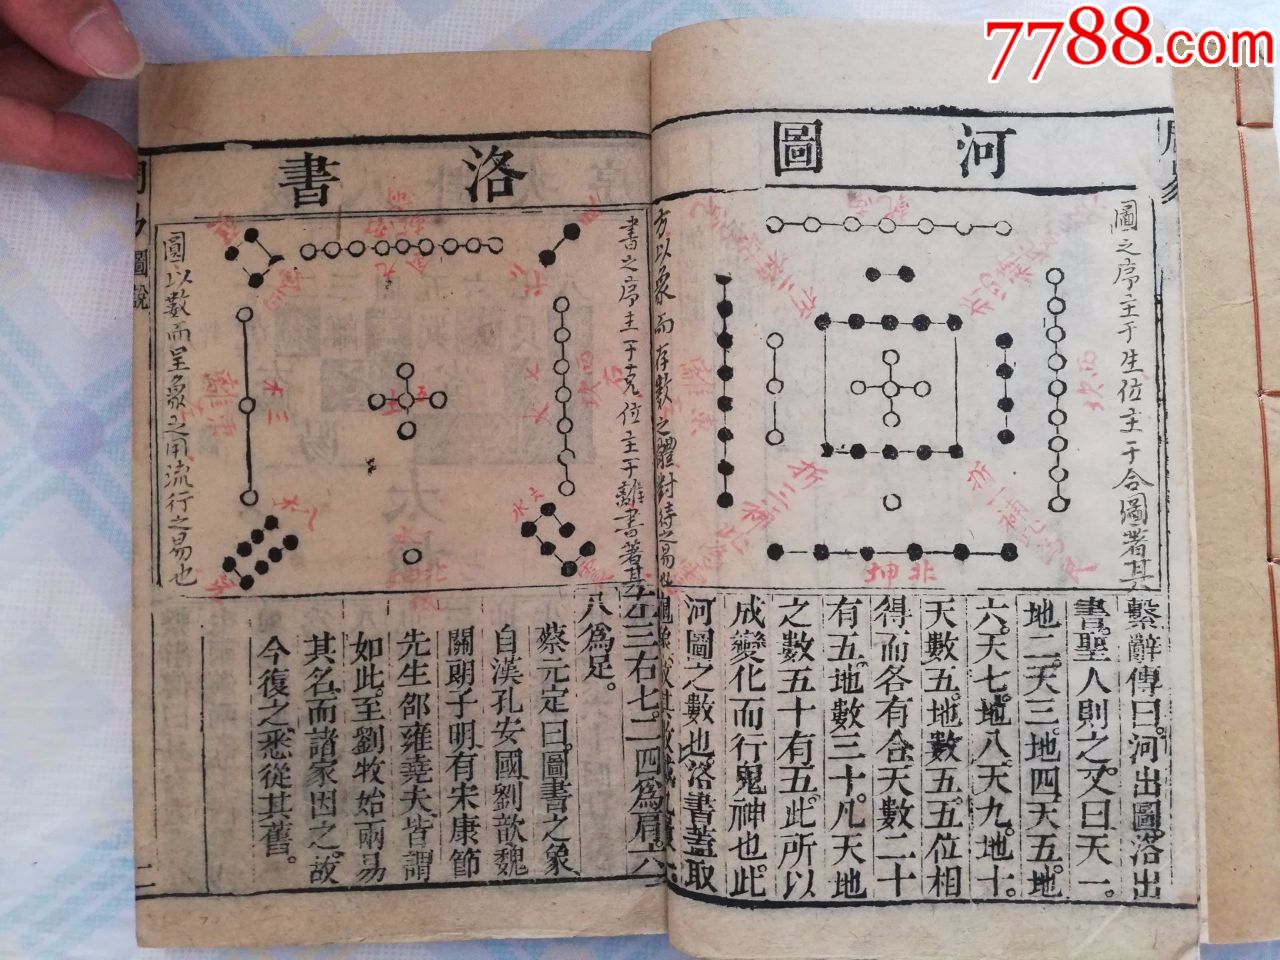 7788.com
周易
河圖
圖之序主于生位主于合圖著其
方以象而存數之體對待之易也
繫辭傳曰河出圖洛出
書聖人則之又曰天一
地二天三地四天五地
六天七地八天九地十
天數五地數五五位相
得而各有合天數二十
有五地數三十凡天地
之數五十有五此所以
成變化而行鬼神也此
河圖之數也洛書蓋取
洛書
書之序主于克位主于離書著其
圓以數而呈象之用流行之易也
左三右七二四爲肩六
八爲足
蔡元定曰圖書之象
自漢孔安國劉歆魏
關朗子明有宋康節
先生邵雍堯夫皆謂
如此至劉牧始兩易
其名而諸家因之故
今復之悉從其舊
圖說
二
北坤